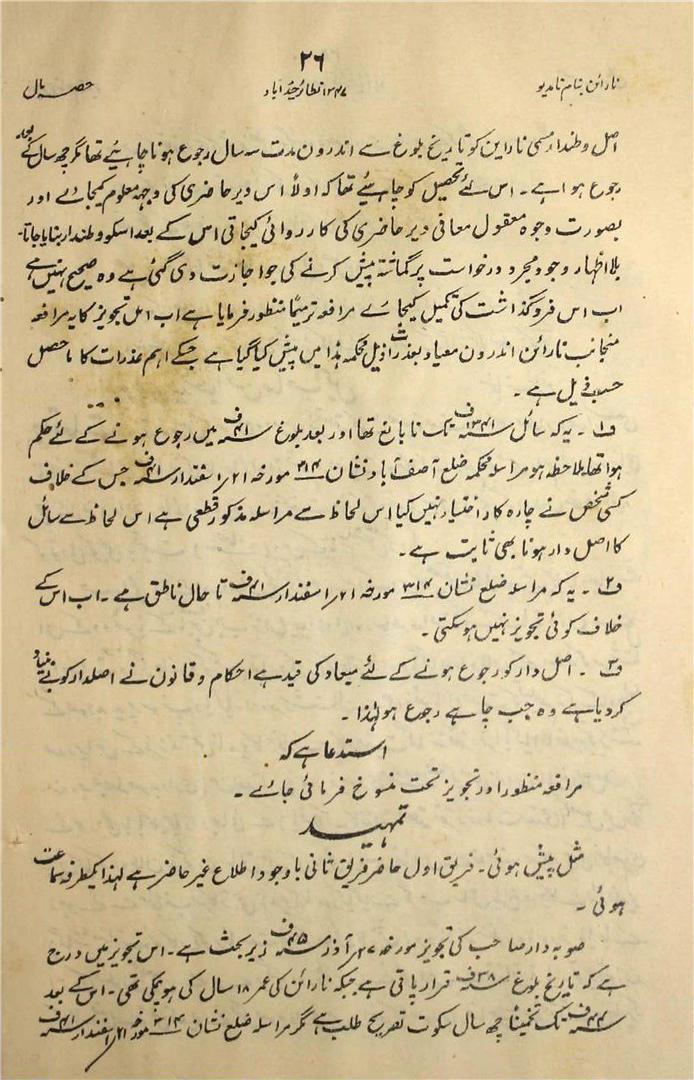 ۲۶
نارائن بنام نامدیو
۱۳۴۷ نظائر حیدرآباد
حصہ مال
اصل وطندار مسمی ناراین کو تاریخ بلوغ سے اندرون مدت سہ سال رجوع ہونا چاہئیے تھا مگر چھ سال کے بعد
رجوع ہوا ہے۔ اس لئے تحصیل کو چاہئیے تھا کہ اولاً اس دیر حاضری کی وجہ معلوم کیجائے اور
بصورت وجوہ معقول معافی دیر حاضری کی کارروائی کیجاتی اس کے بعد اسکو وطندار بنایا جاتا۔
بلا اظہار وجوہ مجرد درخواست پر گماشتہ پیش کرنے کی جو اجازت دی گئی ہے وہ صحیح نہیں ہے
اب اس فروگذاشت کی تکمیل کیجائے مرافعہ ترمیماً منظور فرمایا ہے اب اس تجویز کا یہ مرافعہ
منجانب نارائن اندرون میعاد بعذرات ذیل محکمہ ہذا میں پیش کیا گیا ہے جسکے اہم عذرات کا ماحصل
حسب ذیل ہے۔
ف۱۔ یہ کہ سائل ۱۳۴۱ف تک نابالغ تھا اور بعد بلوغ ۴۱ف میں رجوع ہونے کے لئے حکم
ہوا تھا ملاحظہ ہو مراسلہ محکمہ ضلع آصف آباد نشان ۳۱۴ مورخہ ۲۱ اسفندار ۴۱ف جس کے خلاف
کسی شخص نے چارہ کار اختیار نہیں کیا اس لحاظ سے مراسلہ مذکور قطعی ہے اس لحاظ سے سائل
کا اصل دار ہونا بھی ثابت ہے۔
ف۲۔ یہ کہ مراسلہ ضلع نشان ۳۱۴ مورخہ ۲۱ اسفندار ۴۱ف تا حال ناطق ہے۔ اب اس کے
خلاف کوئی تجویز نہیں ہو سکتی۔
ف۳۔ اصل دار کو رجوع ہونے کے لئے میعاد کی قید ہے احکام و قانون نے اصلدار کو بے بنیاد
کر دیا ہے وہ جب چاہے رجوع ہو لہٰذا۔
استدعا ہے کہ
مرافعہ منظور اور تجویز تحت منسوخ فرمائی جائے۔
تمہید
مثل پیش ہوئی۔ فریق اول حاضر فریق ثانی باوجود اطلاع غیر حاضر ہے لہذا یکطرفہ سماعت
ہوئی۔
صوبہ دار صاحب کی تجویز مورخہ ۲۷ آذر ۴۵ف زیر بحث ہے۔ اس تجویز میں درج
ہے کہ تاریخ بلوغ ۳۸ف قرار پاتی ہے جبکہ نارائن کی عمر ۱۸ سال کی ہو چکی تھی۔ اس کے بعد
۴۴ف تک تخمیناً چھ سال سکوت تصریح طلب ہے مگر مراسلہ ضلع نشان ۳۱۴ مورخہ ۲۱ اسفندار ۴۱ف